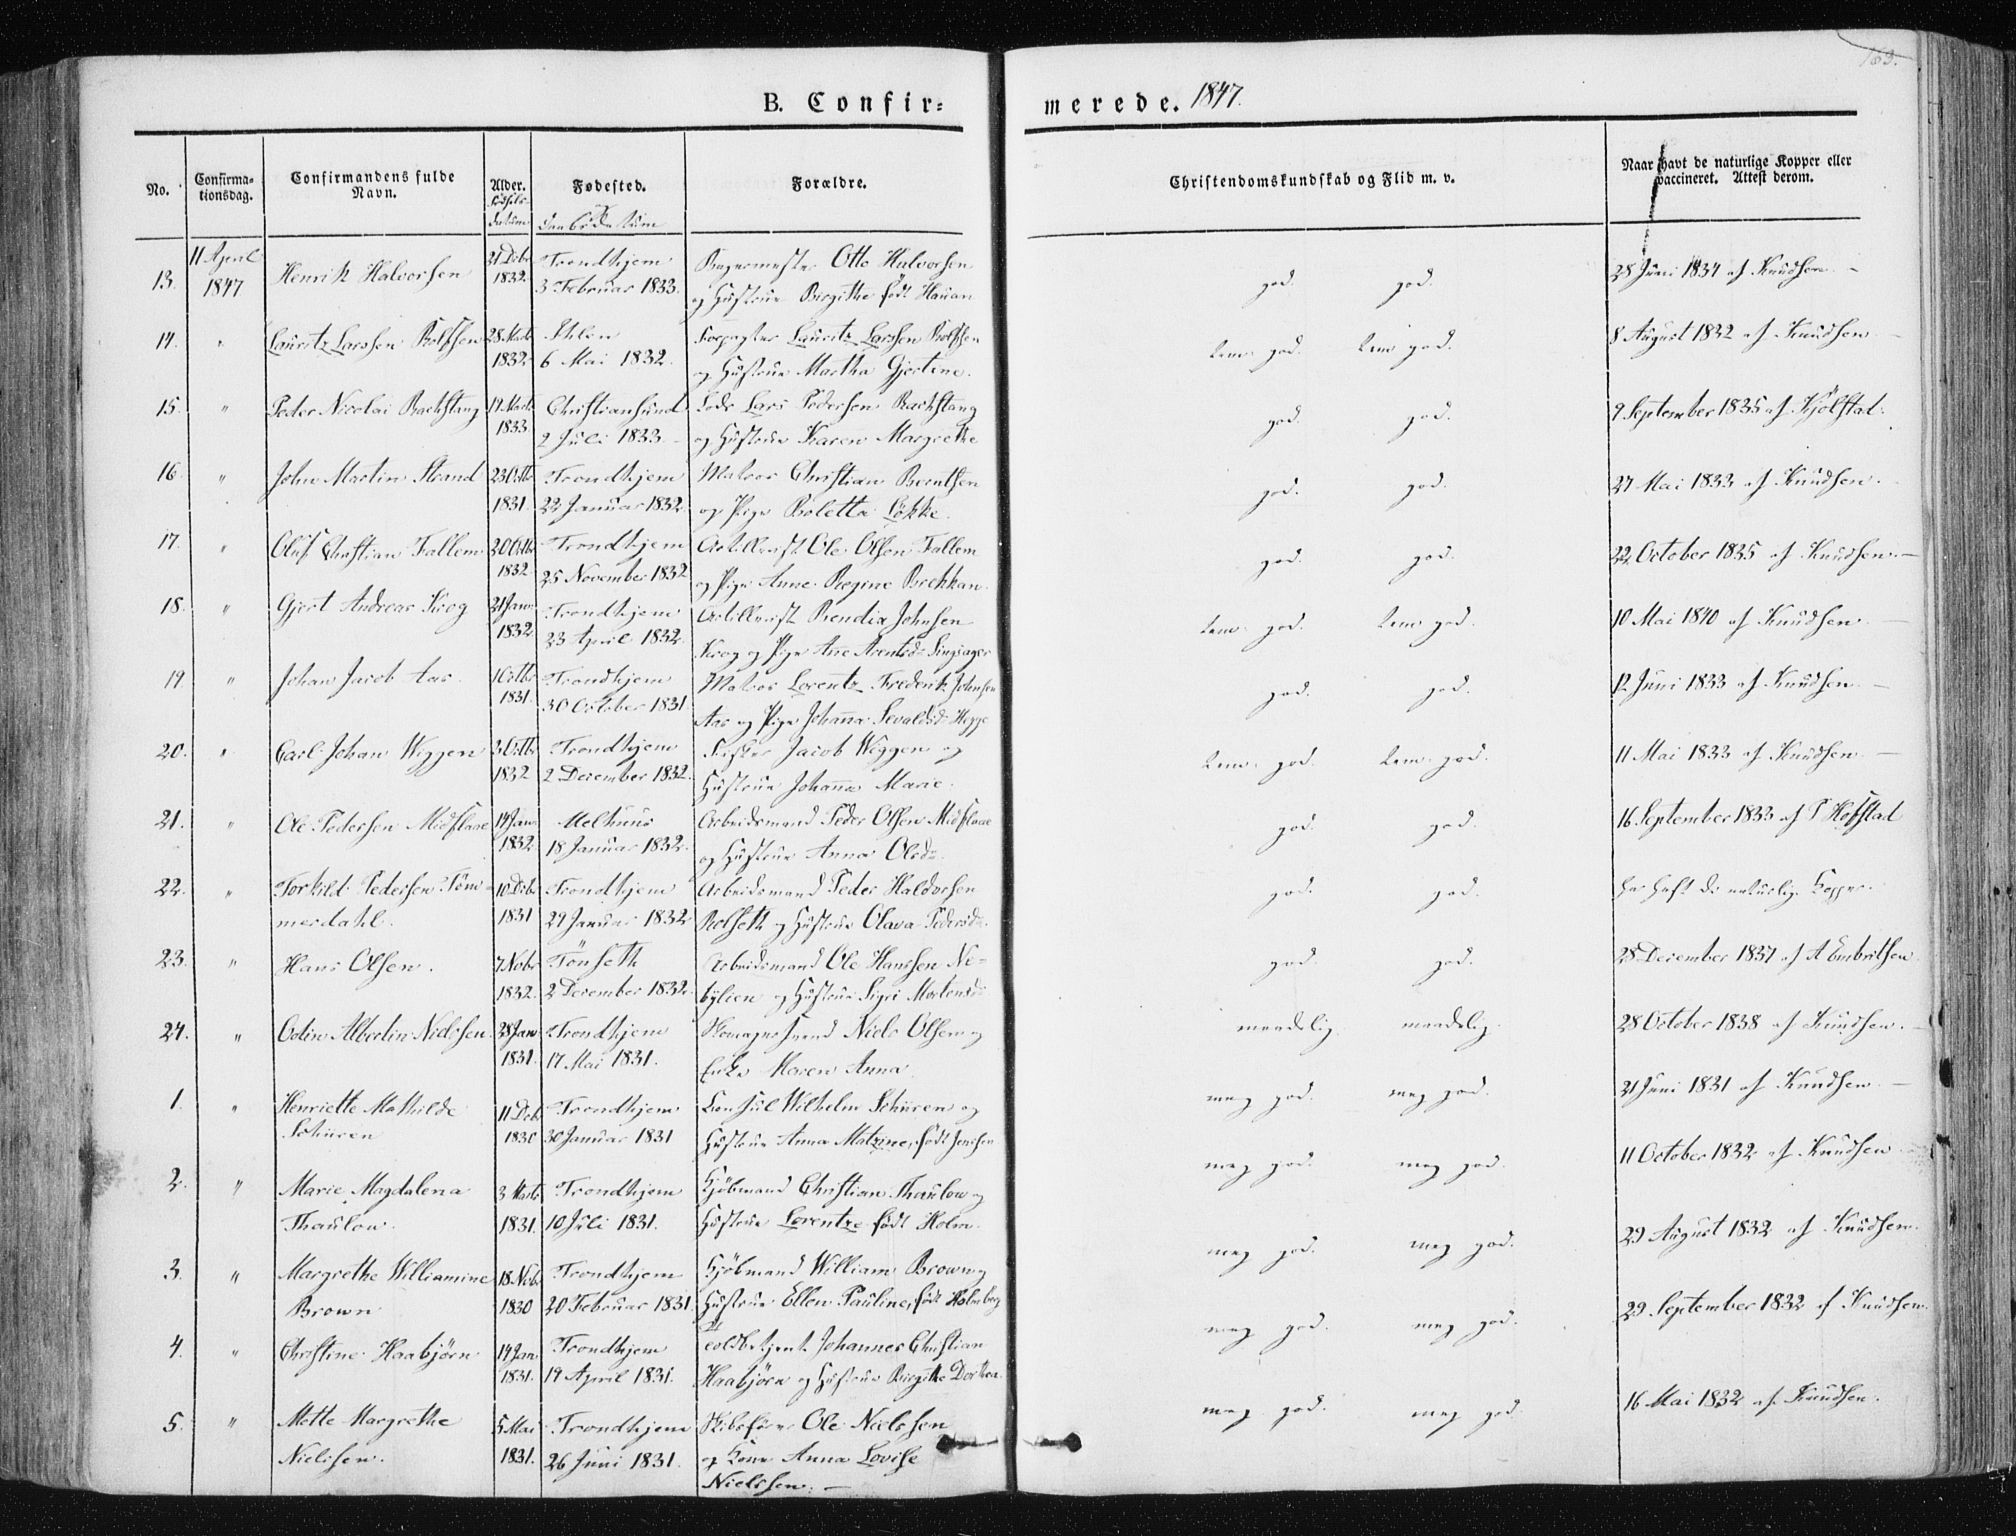 163.
B. Confir=
merede. 1847.
No. Confirma=tionsdag. Confirmandens fulde Navn. Alder. Födsels datum Fødested. Daabsdatum Forældre. Christendomskundskab og Flid m. v. Naar havt de naturlige Kopper eller vaccineret. Attest derom.
13. 11 April 1847 Henrik Halvorsen 31 Debr 1832 Trondhjem 3 Februar 1833. Otto Halvorsen og Hustrue Birgithe født Hauan god. god. 28 Juni 1834 af Knudsen.
14. " Lauritz Larssen Rolfsen 28 Marts 1832 Ihlen 6 Mai 1832. Lauritz Larssen Rolfsen og Hustrue Martha Gjertine. tem. god. tem. god. 8 August 1832 af Knudsen
15. " Peder Nicolai Backstang 19 Marts 1833 Christiansund 2 Juli 1833. Lods Lars Pedersen Backstang og Hustrue Karen Margrethe god. god. 9 September 1835 af Kjölstad.
16. " John Martin Strand 23 Octbr 1831. Trondhjem 22 Januar 1832. Matros Christian Berntsen og Pige Boletta Løkke. god. god. 27 Mai 1833 af Knudsen.
17. " Oluf Christian Fallem 20 Octbr 1832. Trondhjem 25 November 1832 Artillerist Ole Olsen Fallem og Pige Anne Regine Brekkan. god. god. 22 October 1835 af Knudsen.
18. " Gjert Andreas Krog 21 Janr 1832 Trondhjem 23 April 1832. Artillerist Bendix Johnsen Krog og Pige Ane Arentsd: tem. god. tem. god. 10 Mai 1840 af Knudsen.
19 " Johan Jacob Aas. 1 Octbr 1831. Trondhjem 30 October 1831. Matros Lorentz Frederik Johnsen Aas og Pige Johanna Sevaldsd: Hegge god. god. 12 Juni 1833 af Knudsen.
20. " Carl Johan Wiggen 3 Octbr 1832 Trondhjem 2 December 1832. Jacob Wiggen og Hustrue Johanna Marie. tem. god. tem. god. 11 Mai 1833 af Knudsen.
21. " Ole Pedersen Midflaae 14 Janr 1832. Melhuus 18 Januar 1832. Arbeidsmand Peder Olsen Midflaae og Hustrue Anna Olsd: god. god. 16 September 1833 af P Hofstad
22. " Torkild Pedersen Tömmerdahl. 10 Debr 1831 Trondhjem 29 Januar 1832 Arbeidsmand Peder Haldorsen Rolseth og Hustrue Olava Pedersd: god. god. har haft de naturlige Kopper.
23. " Hans Olsen. 7 Nobr 1832. Tönseth 2 December 1832. Arbeidsmand Ole Hanssen Ne=bylien og Hustrue Sigri Mortensd: god. god. 28 December 1837 af A Embritsen.
24. " Odin Albertin Nielssen 28 Janr 1831. Trondhjem 17 Mai 1831. Skomagersvend Niels Olsen og Enke Maren Anna maadelig. maadelig. 28 October 1838 af Knudsen.
1. " Henriette Mathilde Schüren 11 Deb. 1830 Trondhjem 30 Januar 1831 Consul Wilhelm Schüren og Hustrue Anna Matzine, født Jenssen meg. god. meg god. 21 Juni 1831 af Knudsen
2. " Marie Magdalena Thaulow. 3 Marts 1831. Trondhjem 10 Juli 1831. Kjöbmand Christian Thaulow og Hustrue Lorentze født Holm. meg god. meg god. 11 October 1832 af Knudsen
3. " Margrethe Williamine Brown 18 Nobr 1830 Trondhjem 20 Februar 1831. Kjöbmand William Brown og Hustrue Ellen Pauline, født Holmberg meg god. meg god. 29 August 1832 af Knudsen.
4. " Christine Haabjörn 14 Jan 1831. Trondhjem 19 April 1831. Toldbetjent Johannes Christian Haabjörn og Hustrue Birgithe Dorthea. meg god. meg god. 29 September 1832 af Knudsen.
5. " Mette Margrethe Nielssen. 5 Mai 1831. Trondhjem 26 Juni 1831. Skibsfører Ole Nielssen og Kone Anna Lovise Nielssen. meg. god. meg god. 16 Mai 1832 af Knudsen.